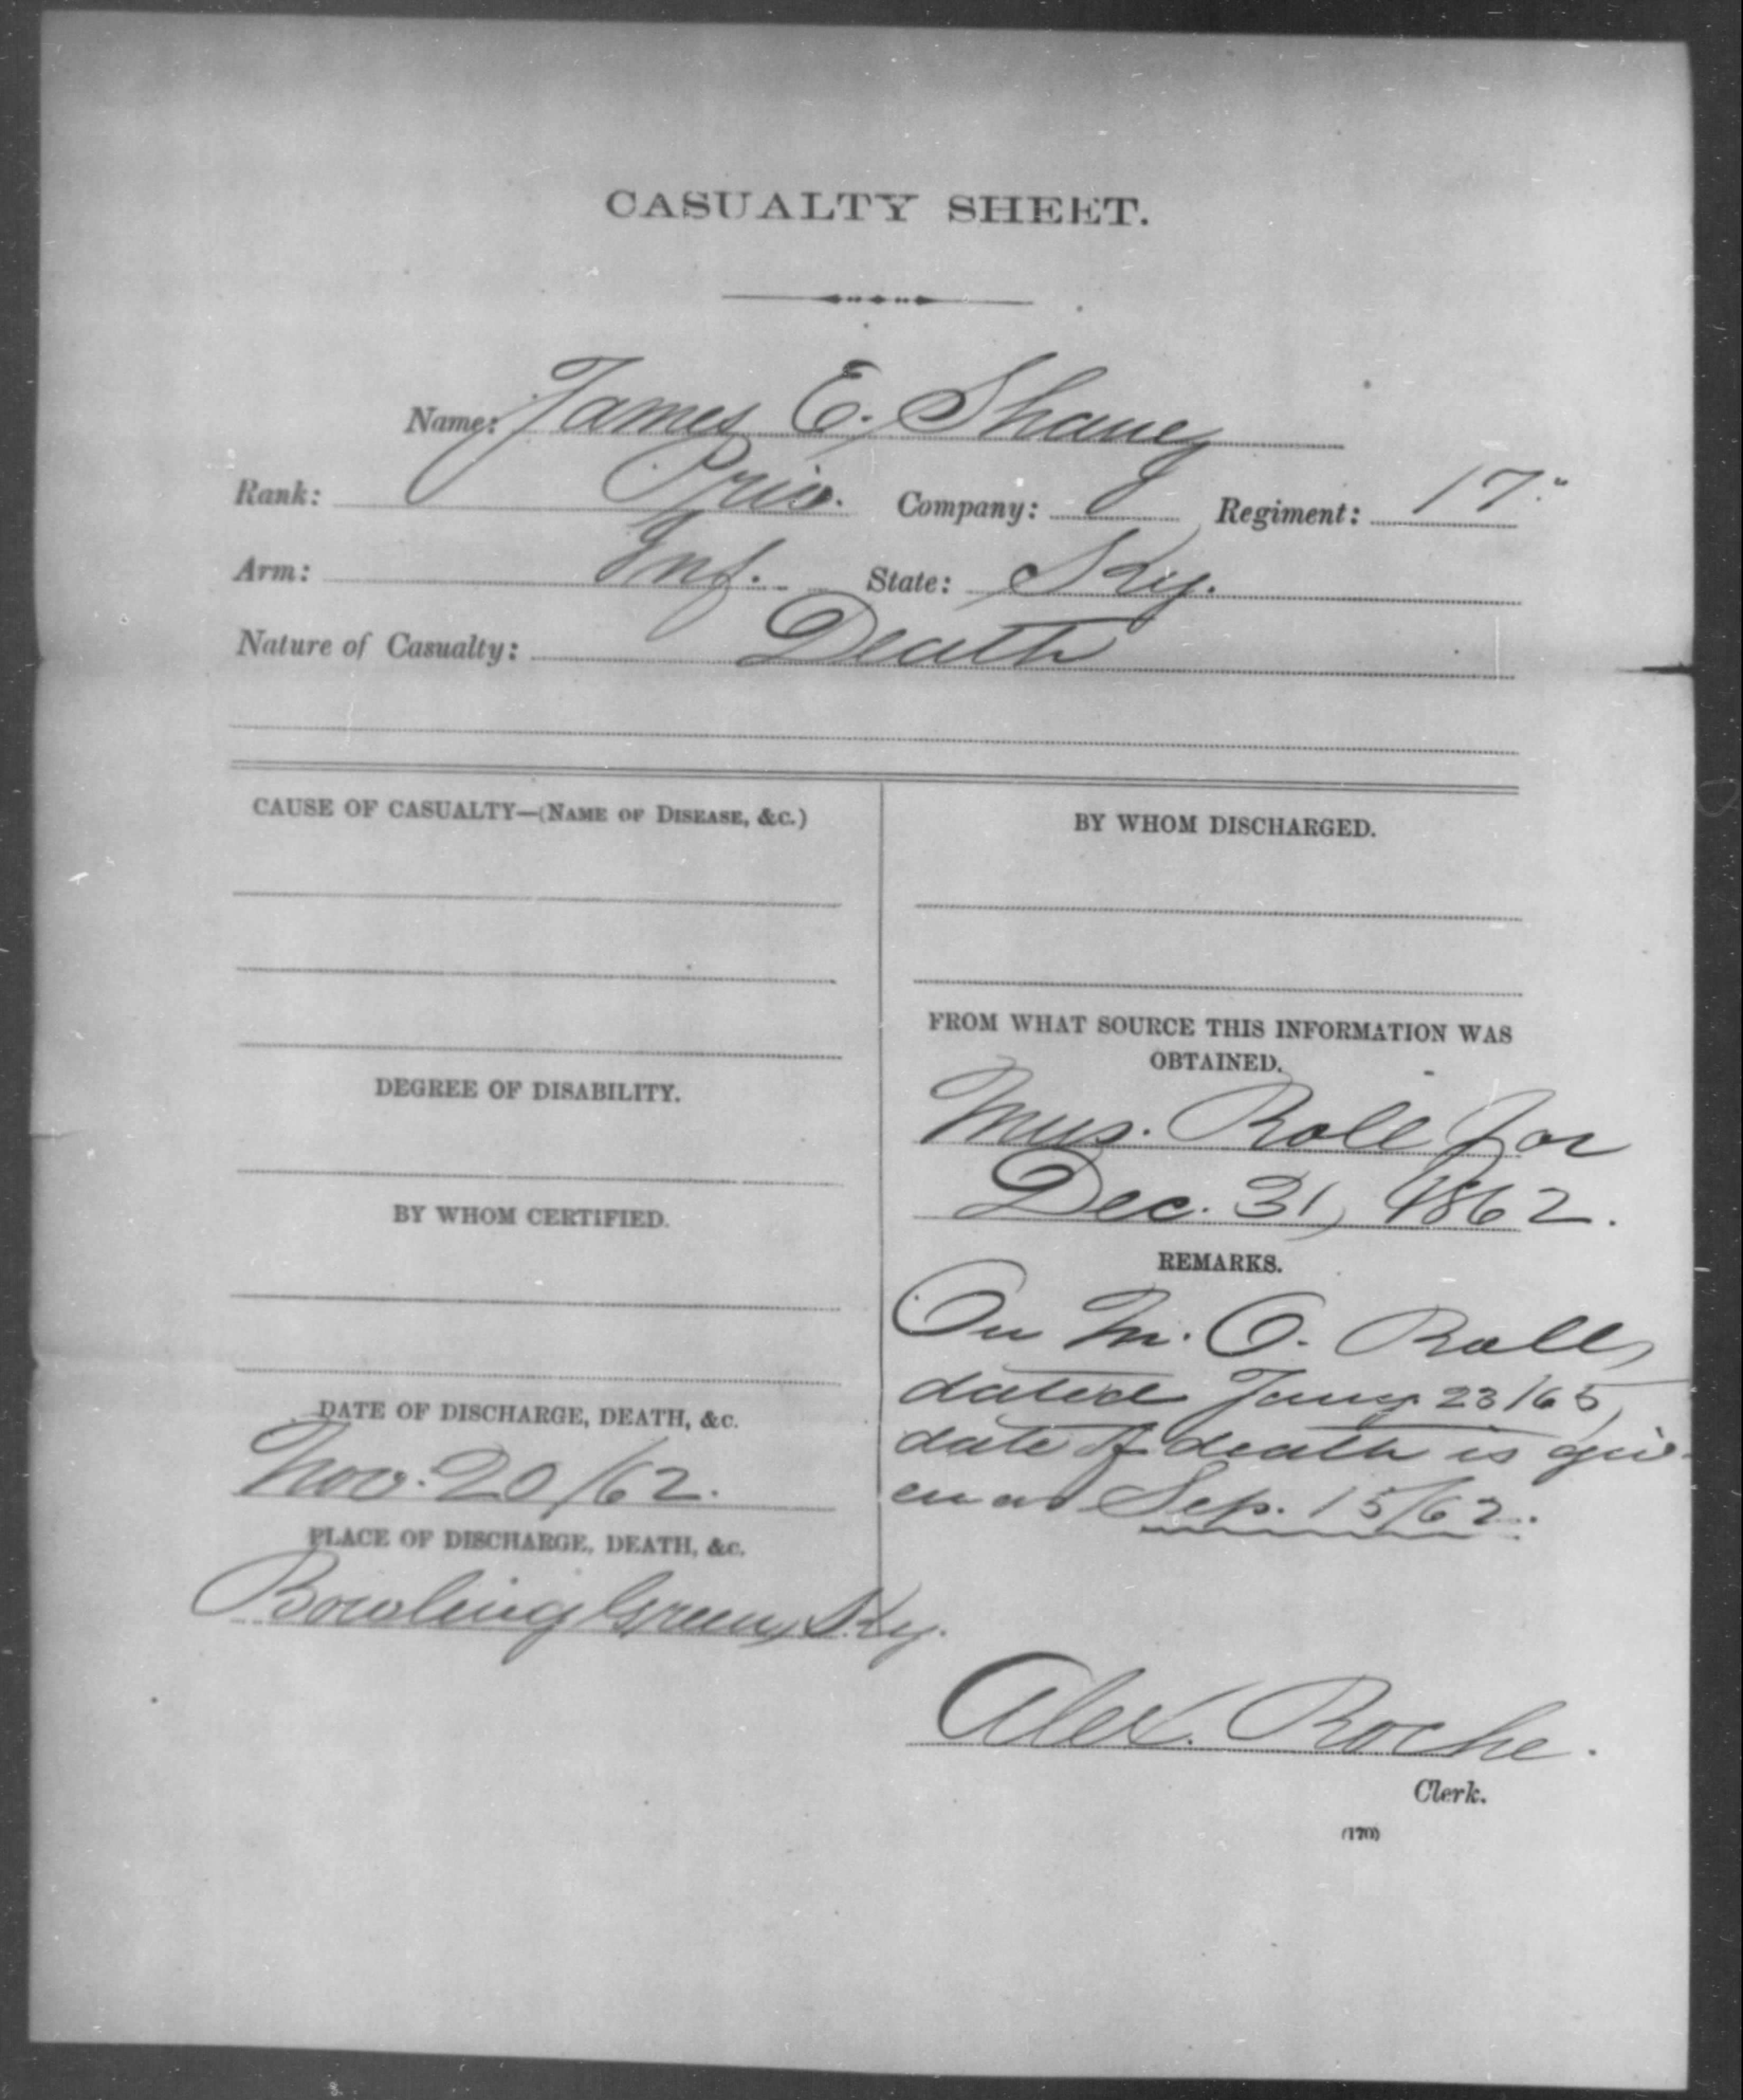 CASUALTY SHEET.
Name: James E. Shaney
Rank: Priv. Company: Regiment: 17"
Arm: Inf. State: Ky.
Nature of Casualty: Death
CAUSE OF CASUALTY—(NAME OF DISEASE, &C.)
DEGREE OF DISABILITY.
BY WHOM CERTIFIED.
DATE OF DISCHARGE, DEATH, &C.
Nov. 20/62.
PLACE OF DISCHARGE, DEATH, &C.
Bowling Green, Ky.
BY WHOM DISCHARGED.
FROM WHAT SOURCE THIS INFORMATION WAS
OBTAINED.
Mus. Roll for
Dec. 31, 1862.
REMARKS.
On M. O. Roll,
dated Jany 23/65,
date of death is giv-
en as Sep. 15/62.
Alex. Roche.
Clerk.
(170)